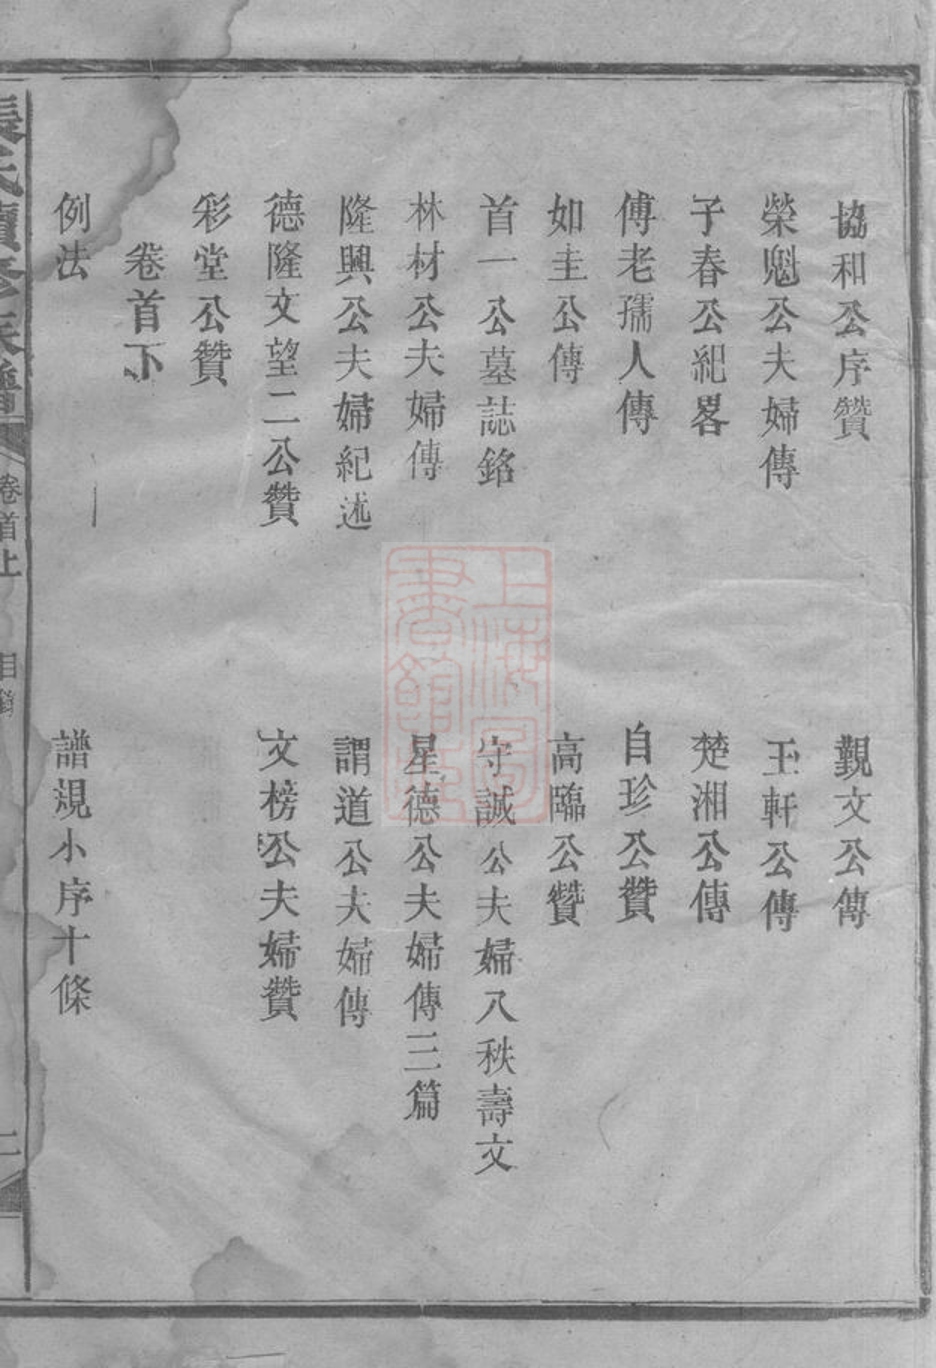 協和公序贊
覲文公傳
榮魁公夫婦傳
玉軒公傳
子春公紀畧
楚湘公傳
傅老孺人傳
自珍公贊
如主公傳
高臨公贊
首一公墓誌銘
守誠公夫婦八秩壽文
林材公夫婦傳
星德公夫婦傳三篇
隆興公夫婦紀述
謂道公夫婦傳
德隆文望二公贊
文榜公夫婦贊
彩堂公贊
卷首下
例法
譜規小序十條
張氏續修族譜
卷首上
目錄
二
上海圖書館藏